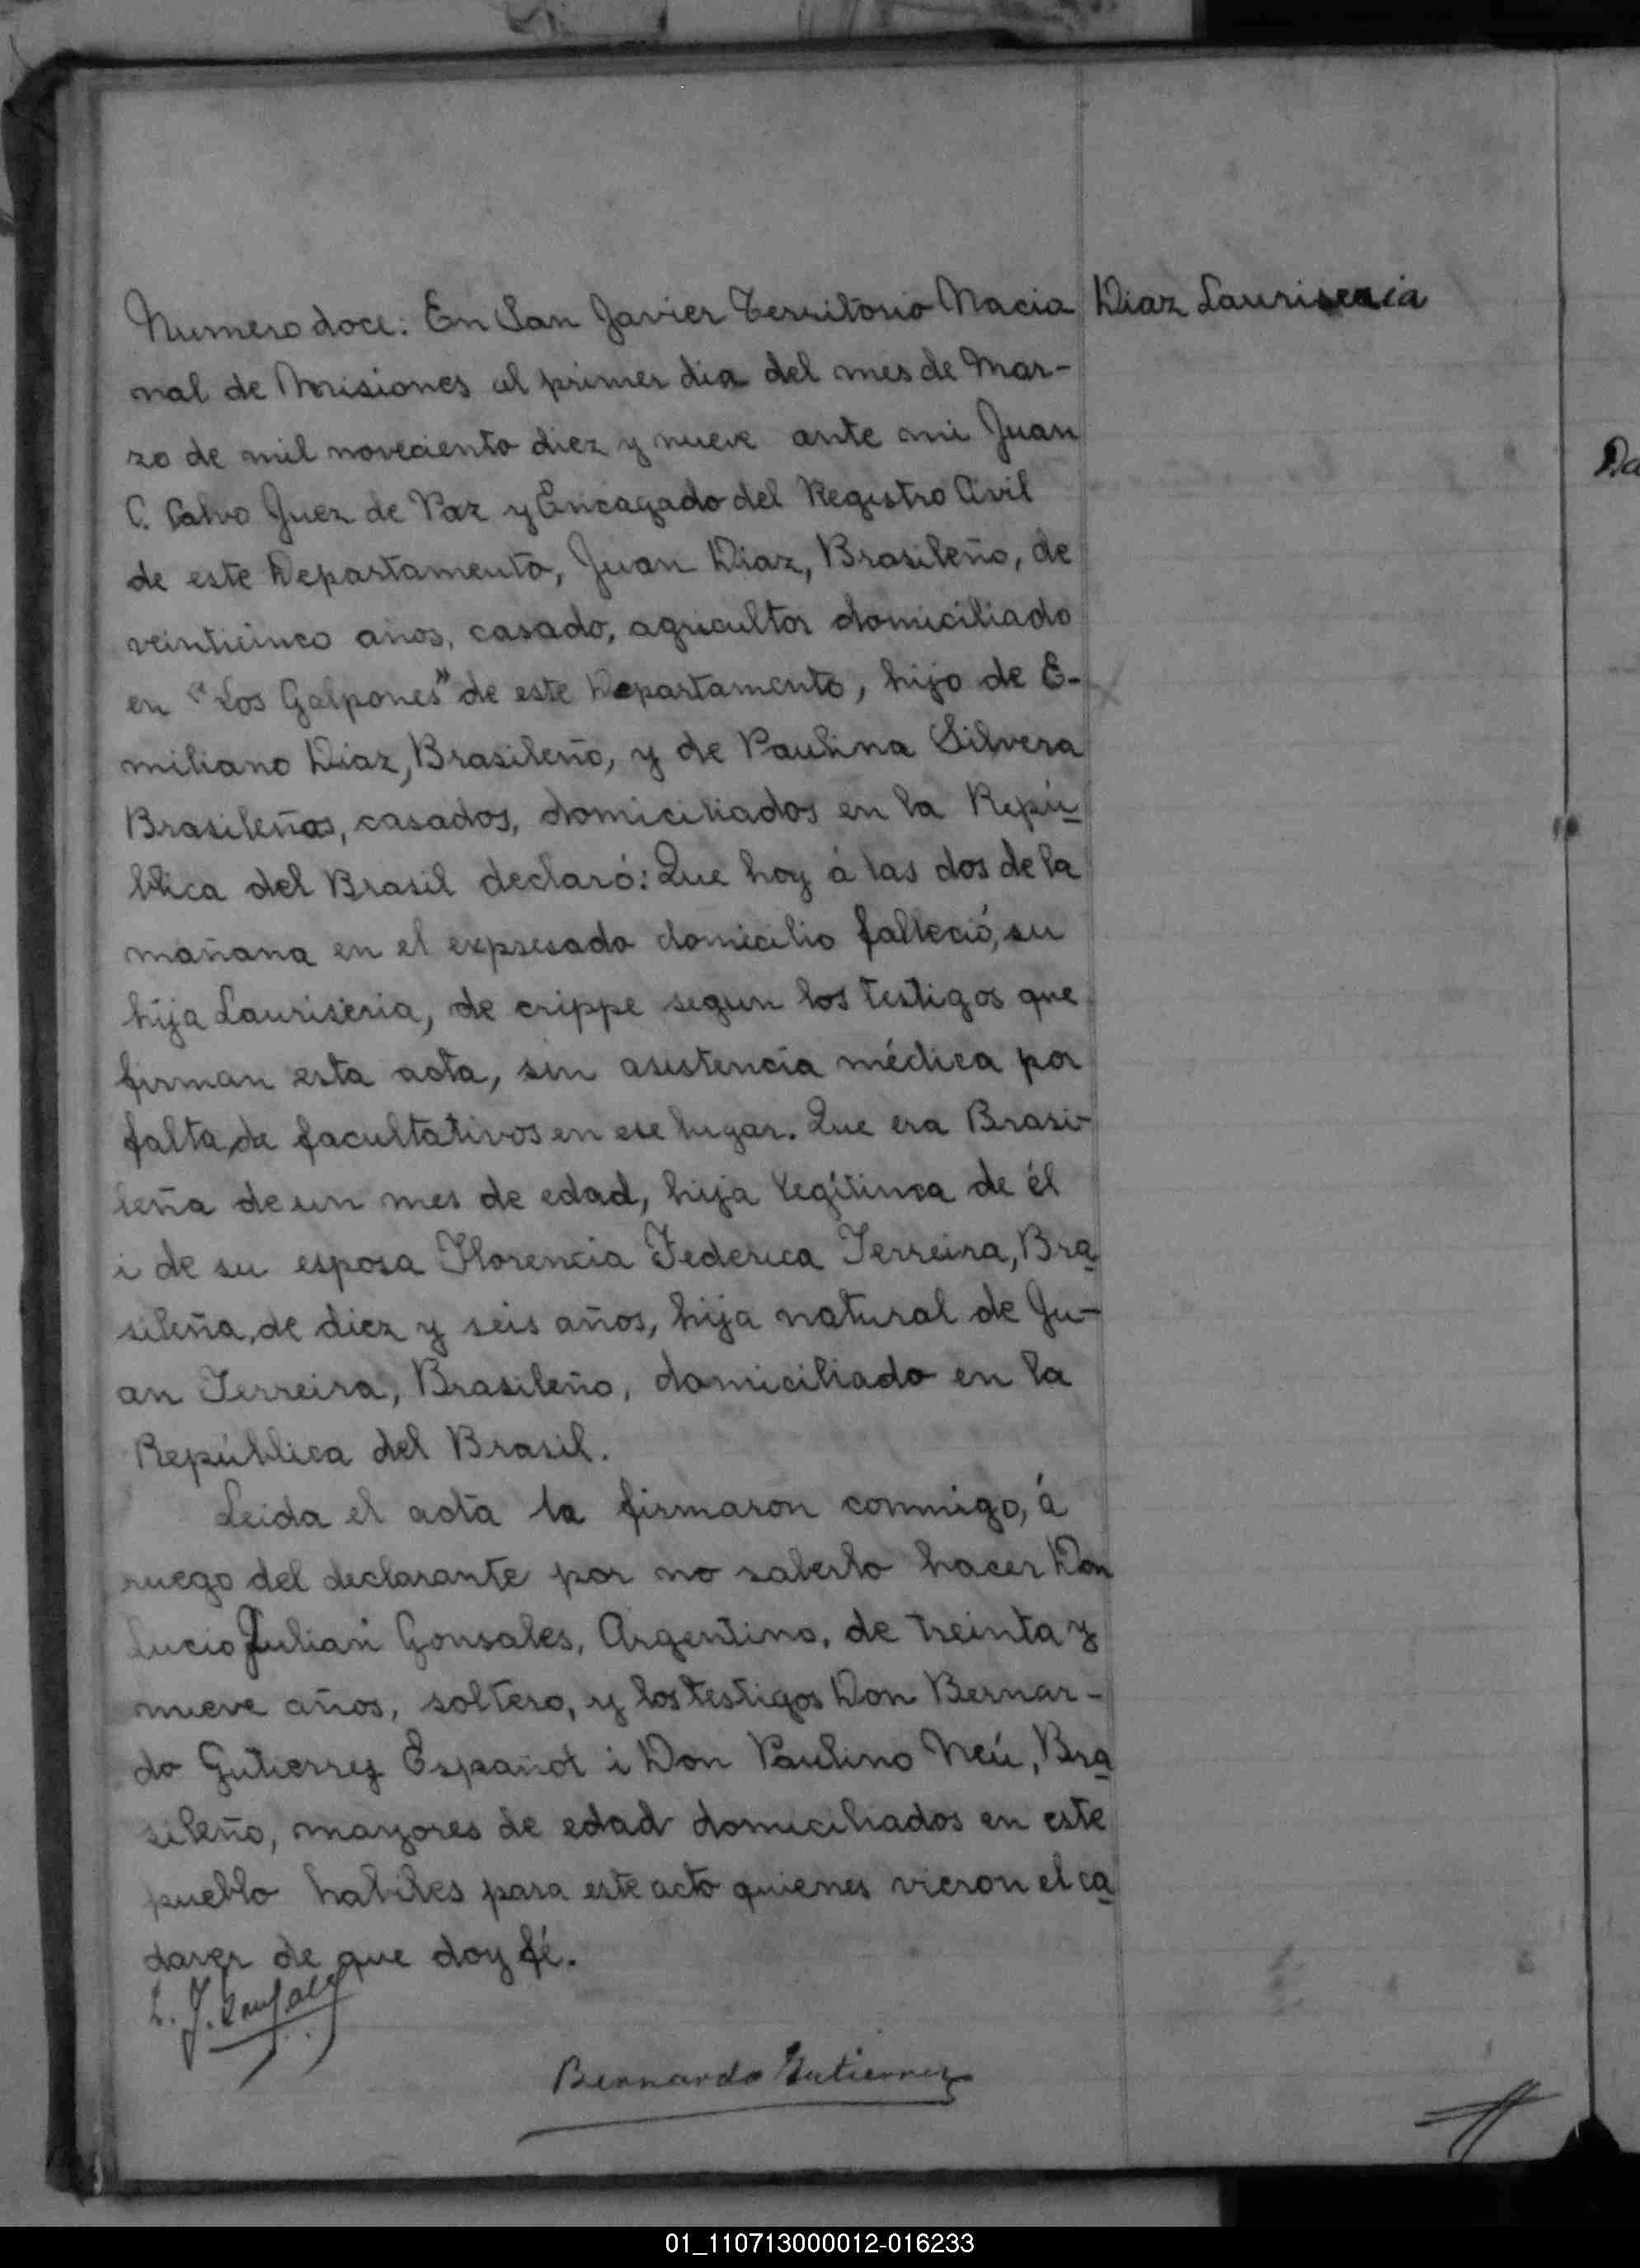 Numero doce: En San Javier Territorio Nacio
nal de Misiones al primer dia del mes de Mar-
zo de mil noveciento diez y nueve ante mi Juan
C. Calvo Juez de Paz y Encagado del Registro Civil
de este Departamento, Juan Diaz, Brasileño, de
veinticinco años, casado, agricultor domiciliado
en "Los Galpones" de este Departamento, hijo de E-
miliano Diaz, Brasileño, y de Paulina Silvera
Brasileños, casados, domiciliados en la Repú
blica del Brasil declaró: Que hoy á las dos de la
mañana en el expresado domicilio falleció, su
hija Lauriseria, de crippe segun los testigos que
firman esta acta, sin asistencia médica por
falta de facultativos en ese lugar. Que era Brasi-
leña de un mes de edad, hija legítima de él
i de su esposa Florencia Federica Ferreira, Bra
sileña, de diez y seis años, hija natural de Ju-
an Ferreira, Brasileño, domiciliado en la
República del Brasil.
Leida el acta la firmaron conmigo, á
ruego del declarante por no saberlo hacer Don
Lucio Julian Gonsales, Argentino, de treinta y
nueve años, soltero, y los testigos Don Bernar-
do Gutierrez Español i Don Paulino Neú, Bra
sileño, mayores de edad domiciliados en este
pueblo habiles para este acto quienes vieron el ca
daver de que doy fé.
L. J. Gonsales
Bernardo Gutierrez
Diaz Lauriseria
Da
01_110713000012-016233